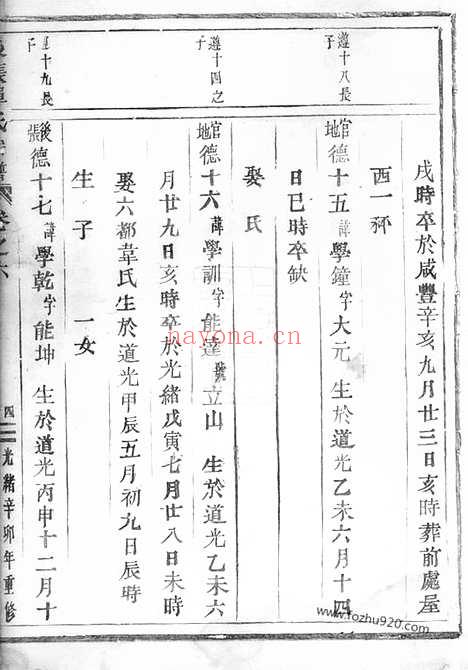 戌時卒於咸豐辛亥九月廿三日亥時葬前處屋
西一秠
遵十八長子
官地德十五諱學鐘字大元 生於道光乙未六月十四
日巳時卒缺
娶氏
遵十四之子
官地德十六諱學訓字能達號立山 生於道光乙未六
月廿九日亥時卒於光緒戊寅七月廿八日未時
娶六都韋氏生於道光甲辰五月初九日辰時
生子 一女
十九長子
後張德十七諱學乾字能坤 生於道光丙申十二月十
卷之六 四 光緒辛卯年重修
nayona.cn
www.fozhu920.com